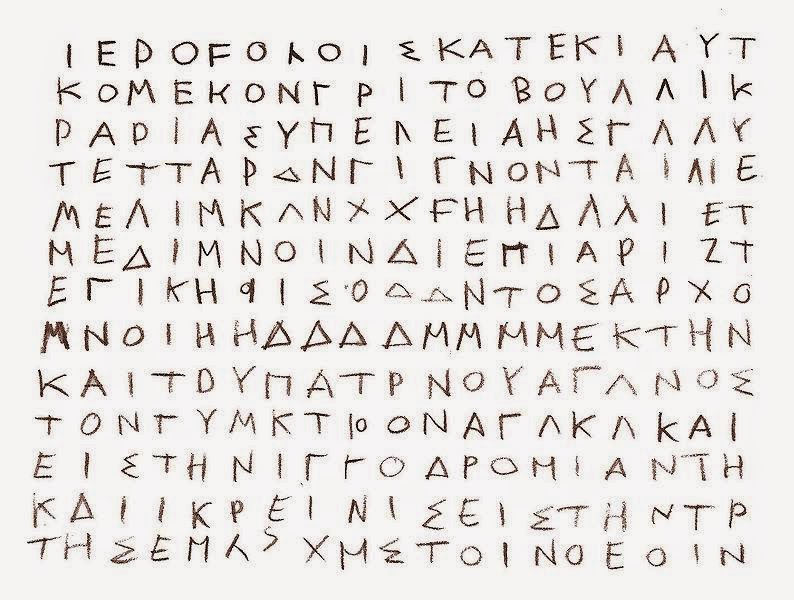 ΙΕΡΟFΟΛΟΙΣΚΑΤΕΚΙΑΥΤ
ΚΟΜΕΚΟΝΓΡΙΤΟΒΟΥΛΛΙΚ
ΡΑΡΙΑΣΥΠΕΛΕΙΑΗΣΓΛΛΥ
ΤΕΤΤΑΡΔΝΓΙΓΝΟΝΤΑΙΛΙΕ
ΜΕΛΙΜΚΛΝΧΧFΗΗΔΛΛΙΕΤ
ΜΕΔΙΜΝΟΙΝΔΙΕΠΙΑΡΙΖΤ
ΕΓΙΚΗΦΙΣΟΔΔΝΤΟΣΑΡΧΟ
ΜΝΟΙΗΗΔΔΔΔΜΜΜΜΕΚΤΗΝ
ΚΑΙΤΟΥΠΑΤΡΝΟΥΑΓΛΝΟΣ
ΤΟΝΓΥΜΚΤΙΟΟΝΑΓΛΚΛΚΑΙ
ΕΙΣΤΗΝΙΓΓΟΔΡΟΜΙΑΝΤΗ
ΚΔΙΙΚΡΕΙΝΙΣΕΙΣΤΗΝΤΡ
ΤΗΣΕΜΛΣΧΜΣΤΟΙΝΟΕΟΙΝ